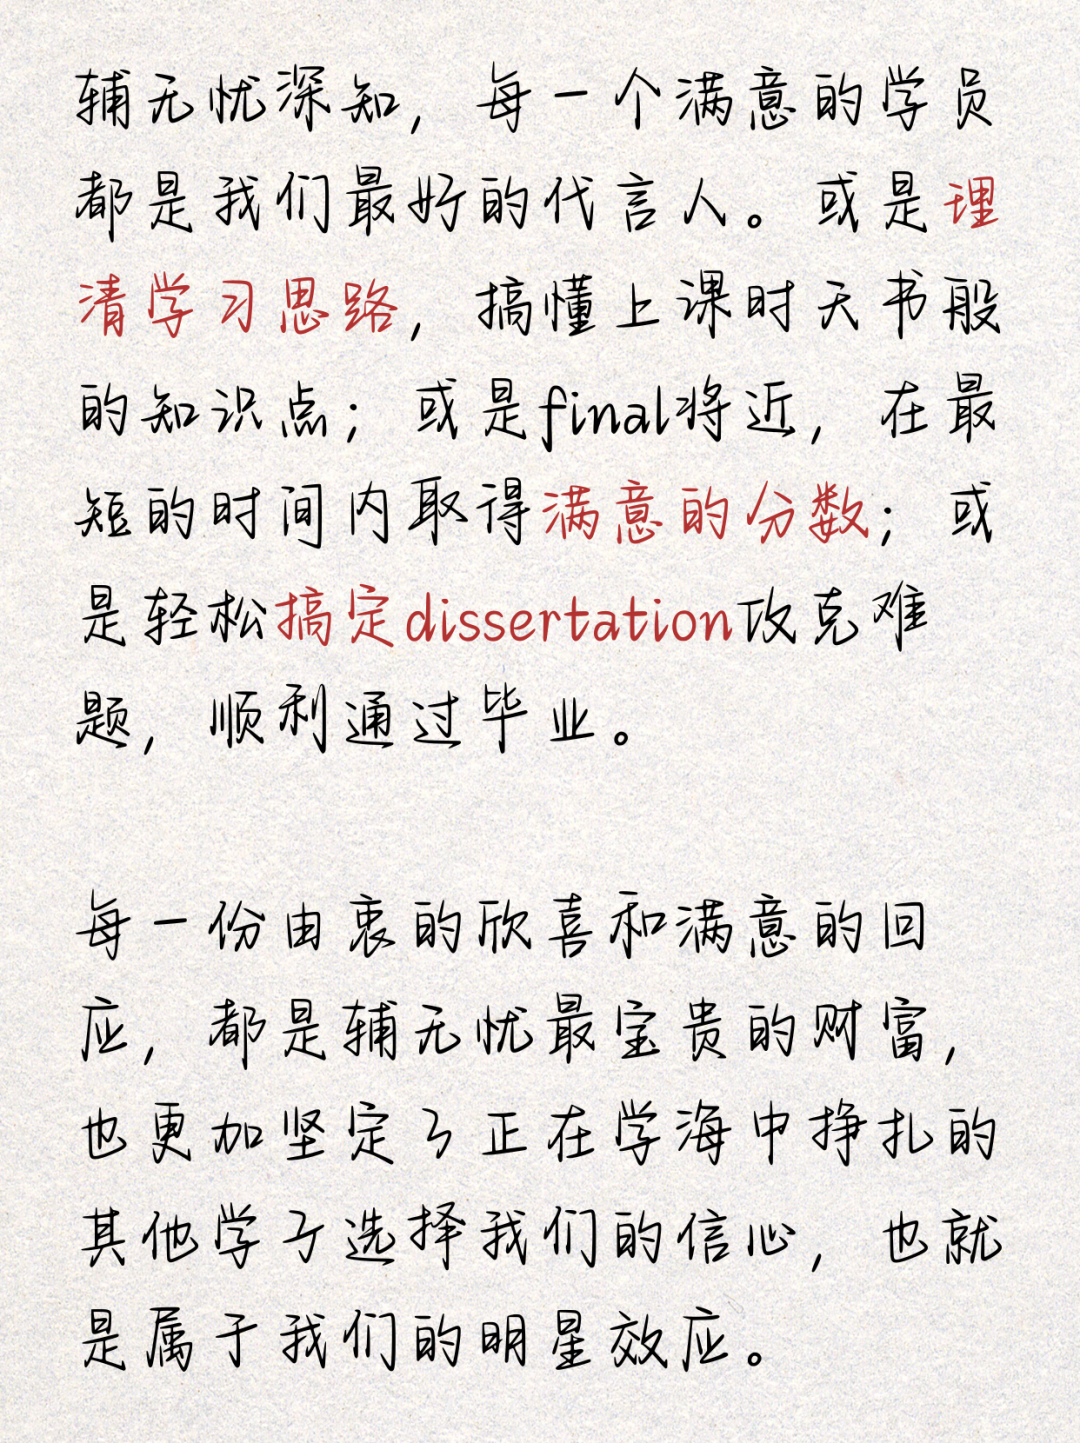 辅无忧深知，每一个满意的学员
都是我们最好的代言人。或是理
清学习思路，搞懂上课时天书般
的知识点；或是final将近，在最
短的时间内取得满意的分数；或
是轻松搞定dissertation攻克难
题，顺利通过毕业。
每一份由衷的欣喜和满意的回
应，都是辅无忧最宝贵的财富，
也更加坚定了正在学海中挣扎的
其他学子选择我们的信心，也就
是属于我们的明星效应。